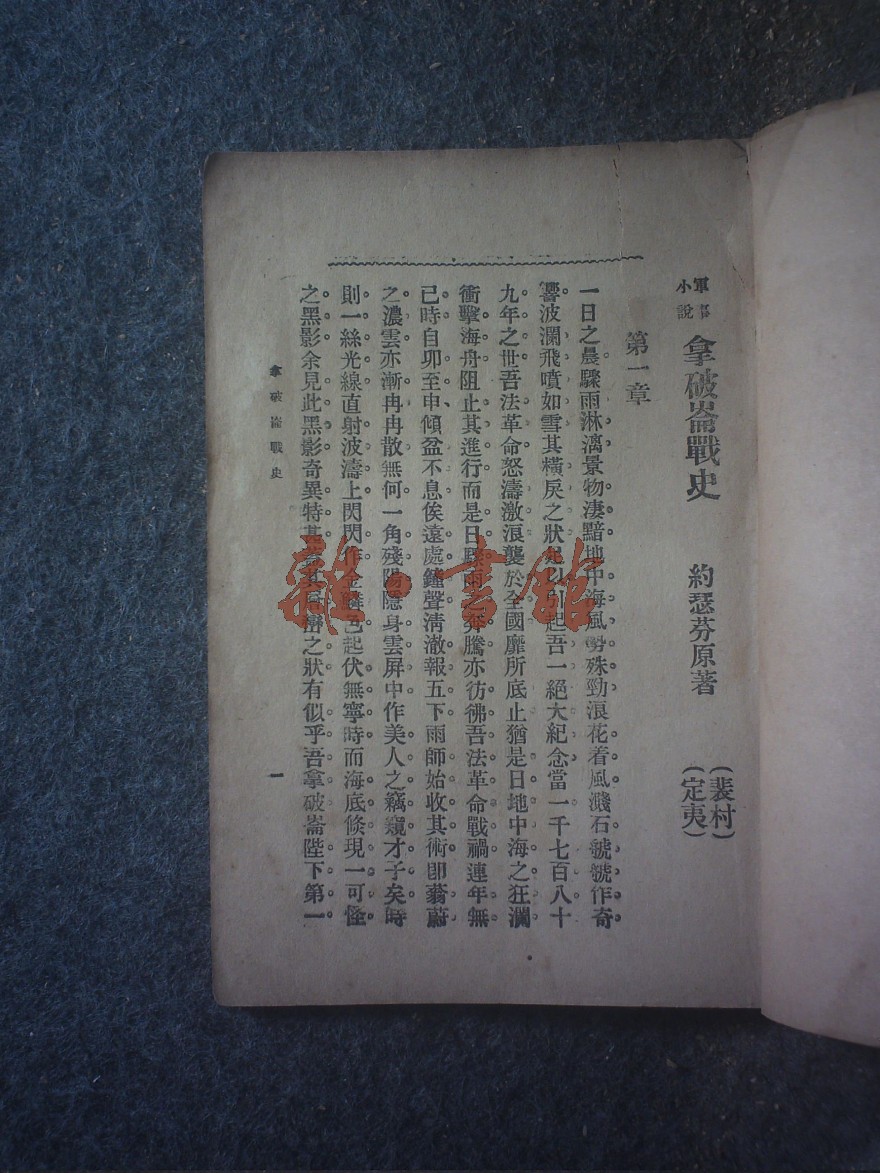 軍事小說
拿破崙戰史
約瑟芬原著
(裴村)
(定夷)
第一章
一日之晨驟雨淋漓景物淒黯地中海風勢殊勁浪花着風濺石虢虢作奇
響波瀾飛噴如雪其橫戾之狀足以引起吾一絕大紀念當一千七百八十
九年之世吾法革命怒濤激浪襲於全國靡所底止猶是日地中海之狂瀾
衝擊海舟阻止其進行而是日驟雨之奔騰亦彷彿吾法革命戰禍連年無
已時自卯至申、傾盆不息俟遠處鐘聲清澈報五下雨師始收其術卽蓊蔚
之濃雲亦漸冉冉散無何一角殘陽隱身雲屏中作美人之竊窺才子矣時
則一絲光線直射波濤上閃閃作金鱗色起伏無寧時而海底倐現一可怪
之黑影余見此黑影奇異特甚其之狀有似乎吾拿破崙陛下第一
拿破崙戰史
一
雜·書館